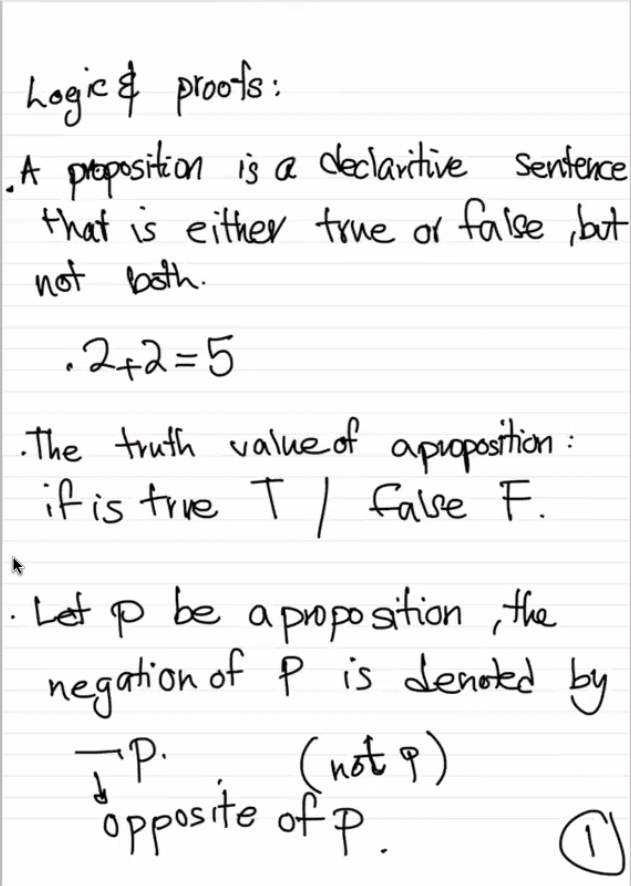 Logic & proofs:
. A proposition is a declaritive sentence
that is either true or false, but
not both.
. 2+2=5
. The truth value of a proposition:
if is true T / false F.
. Let p be a proposition, the
negation of P is denoted by
¬P. (not P)
↓
opposite of P.
1